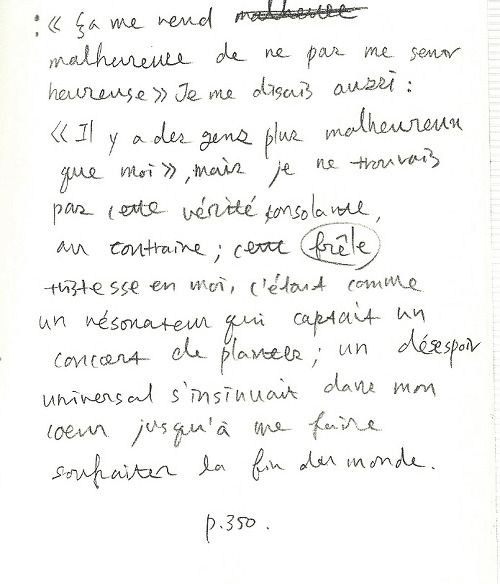 : « Ça me rend
malheureuse de ne pas me sentir
heureuse » Je me disais aussi :
« Il y a des gens plus malheureux
que moi », mais je ne trouvais
pas cette vérité consolante,
au contraire ; cette frêle
tristesse en moi, c'était comme
un résonateur qui captait un
concert de plaintes ; un désespoir
universal s'insinuait dans mon
cœur jusqu'à me faire
souhaiter la fin du monde.
p.350.